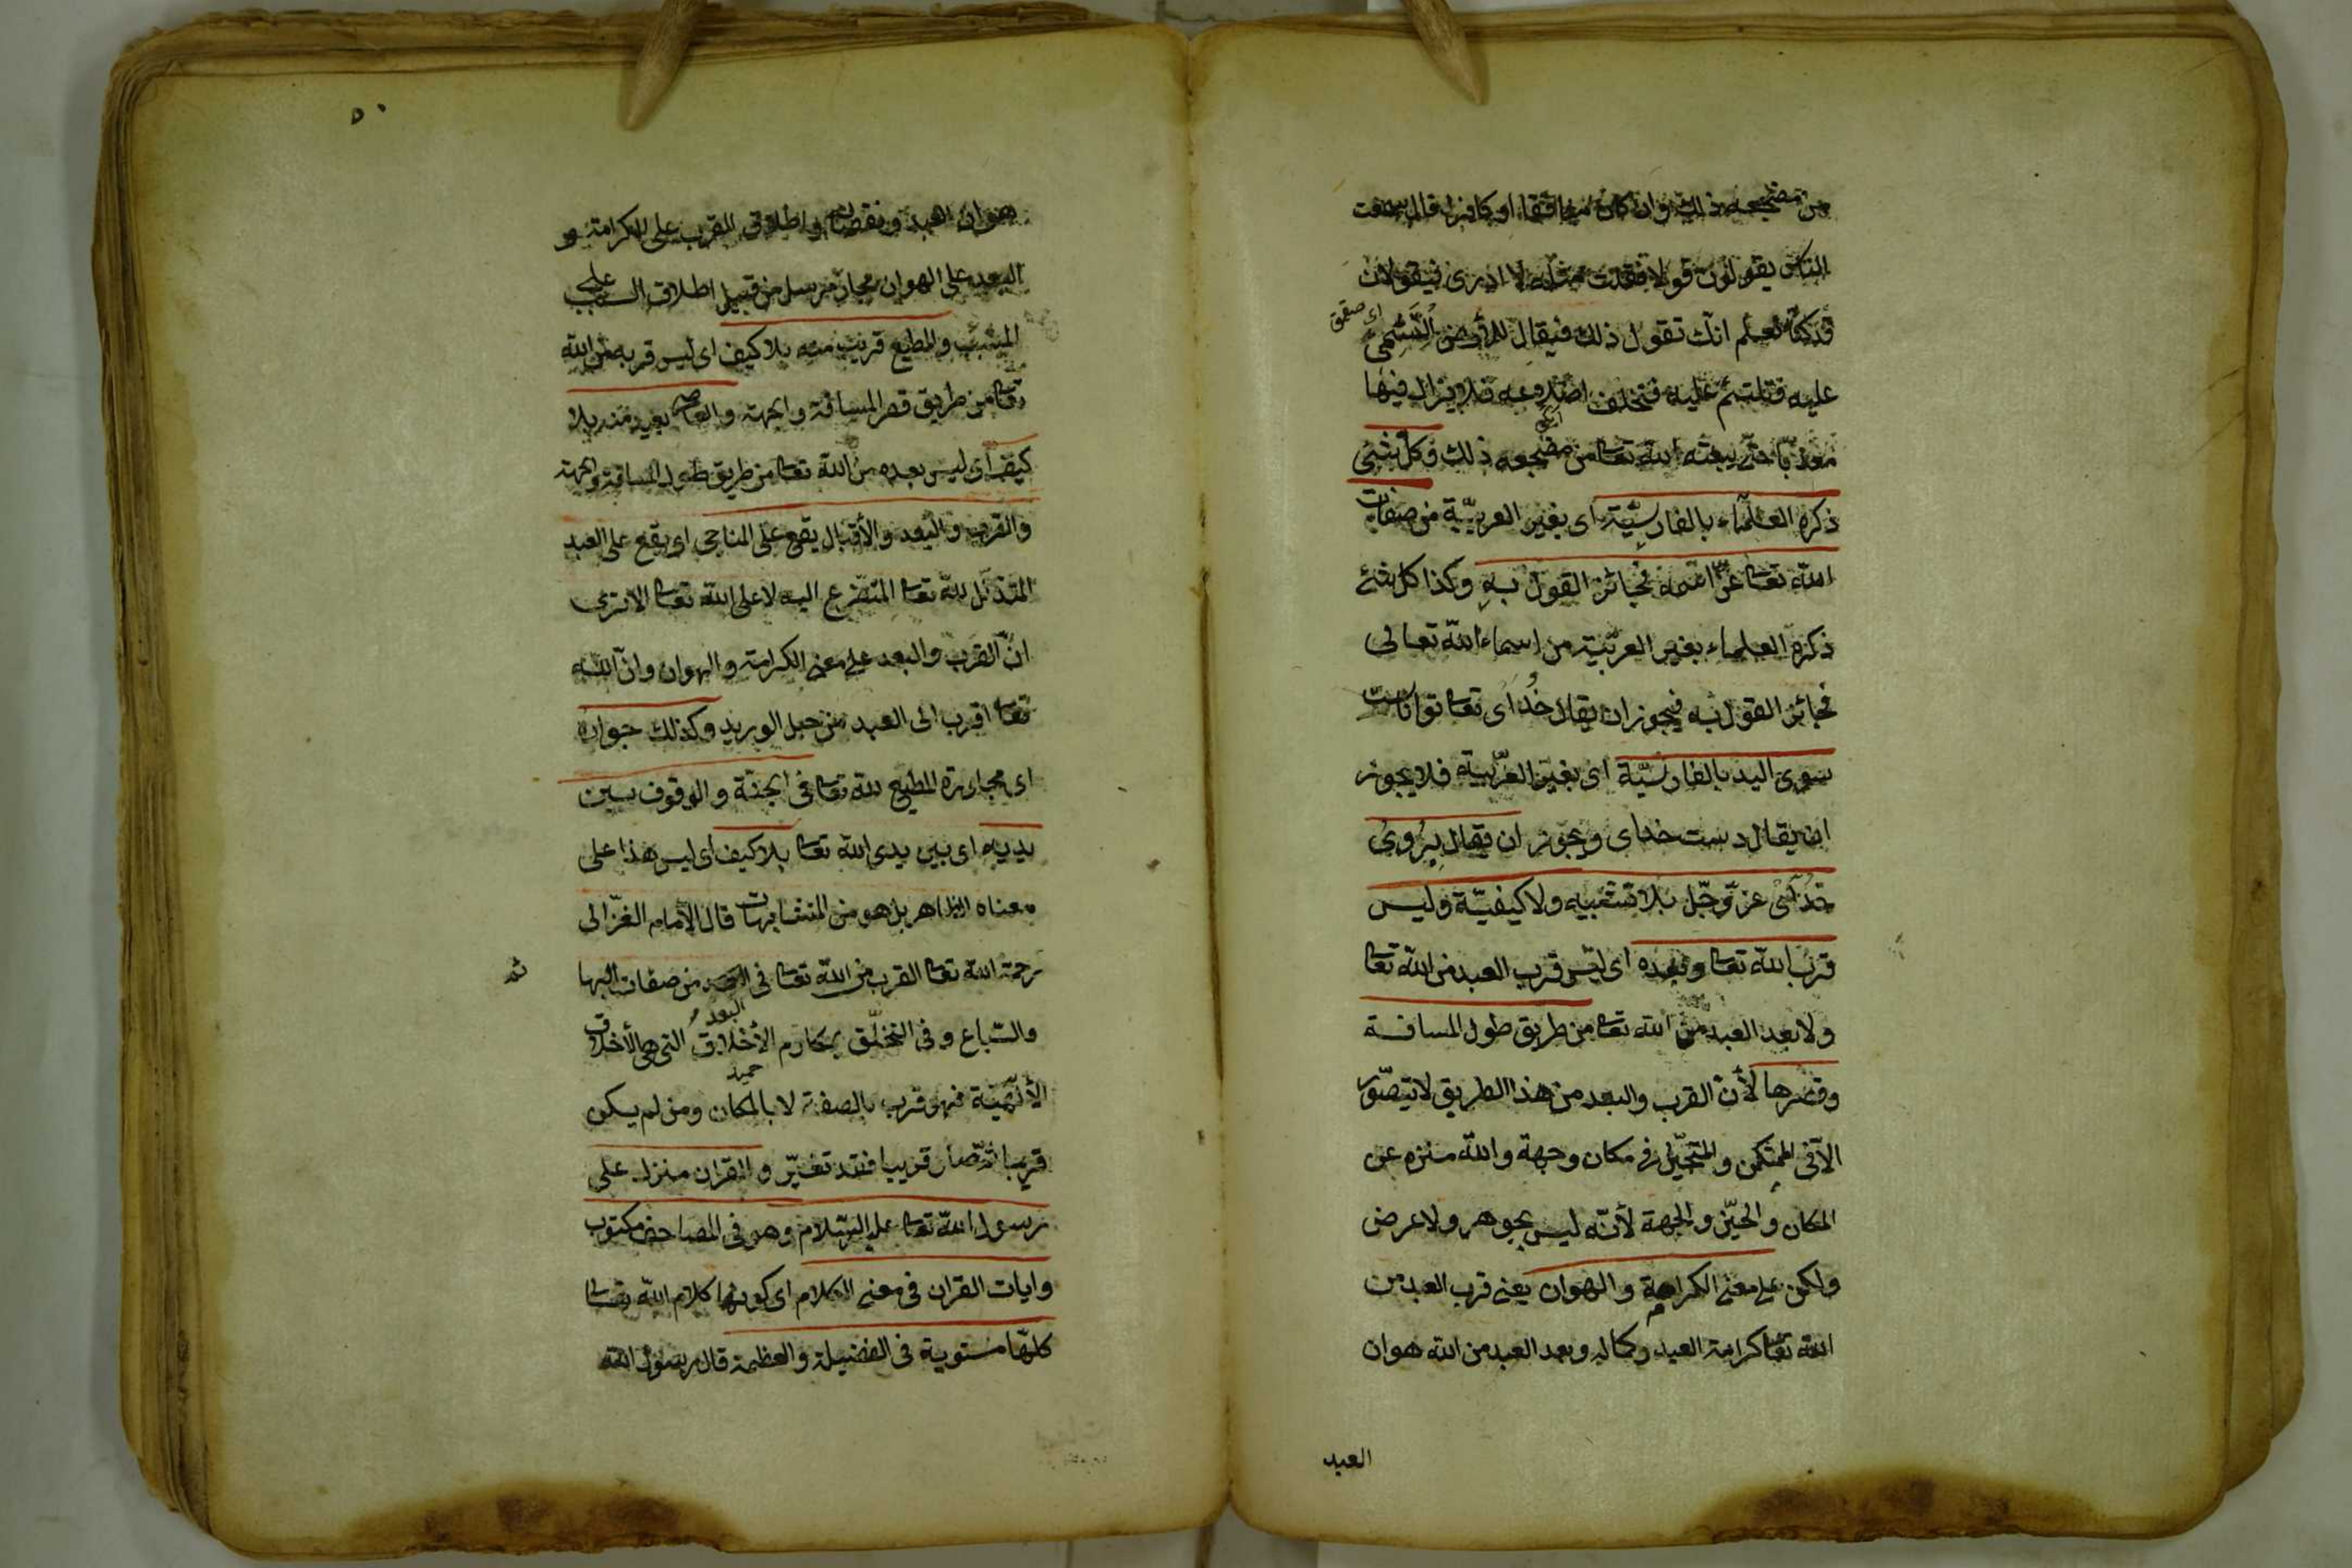 من مضجعه ذلك وان كان منافقا او كافرا قال سمعت
الناس يقولون قولا فقلت مثله لا ادرى فيقولان
قد كنّا نعلم انك تقول ذلك فيقال للأرض التئمى
اى ضيقى
عليه فتلتئم عليه فتختلف اضلاعه فلا يزال فيها
معذبّا حتى يبعثه الله تعا من مضجعه ذلك وكل شئ
ذكره العلماء بالفارسيّة اى بغير العربيّة من صفات
الله تعا عزّ اسمه فجائز القول به وكذا كل شئ
ذكره العلماء بغير العربيّة من اسماء الله تعالى
فجائز القول به فيجوز ان يقال خداى تعا تواناست
سوى اليد بالفارسيّة اى بغير العربية فلا يجوز
ان يقال دست خداى ويجوز ان يقال بروى
خداى عزّ وجلّ بلا تشبيه ولا كيفيّة وليس
قرب الله تعا وبعده اى ليس قرب العبد من الله تعا
ولا بعد العبد من الله تعا من طريق طول المسافة
وقصرها لأن القرب والبعد من هذا الطريق لا يتصوّر
الّا فى المتمكن والمتحيّز فى مكان وجهة والله منزه عن
المكان والحيّز والجهة لأنّه ليس بجوهر ولا عرض
ولكن على معنى الكرامة والهوان يعنى قرب العبد من
الله تعا كرامة العبد وكماله وبعد العبد من الله هوان
العبد
٥٠
هوان العبد ونقصانه واطلاق القرب على الكرامة و
البعد على الهوان مجاز مرسل من قبيل اطلاق السبب على
المسبّب والمطيع قريب منه بلا كيف اى ليس قربه من الله
تعا من طريق قصر المسافة والجهة والعاصى بعيد منه بلا
كيف اى ليس بعده من الله تعا من طريق طول المسافة والجهة
والقرب والبعد والأقبال يقع على المناجى اى يقع على العبد
المتذلّل لله تعا المتضرع اليه لا على الله تعا الا ترى
انّ القرب والبعد على معنى الكرامة والهوان وانّ الله
تعا اقرب الى العبد من حبل الوريد وكذلك جواره
اى مجاورة المطيع لله تعا فى الجنّة والوقوف بين
يديه اى بين يدى الله تعا بلا كيف اى ليس هذا على
معناه الظاهر بل هو من المتشابهات قال الأمام الغزّالى
رحمة الله تعا القرب من الله تعا فى البعد من صفات البها
ئم
والسّباع وفى التخلّق بمكارم الأخلاق التى هى الأخلاق
البعد
الألهيّة فهو قرب بالصفة لا بالمكان ومن لم يكن
حميد
قريبا ثمّ صار قريبا فقد تغيّر والقران منزل على
رسول الله تعا عليه السّلام وهو فى المصاحف مكتوب
وايات القران فى معنى الكلام اى كونها كلام الله تعا
كلّها مستوية فى الفضيلة والعظمة قال رسول الله